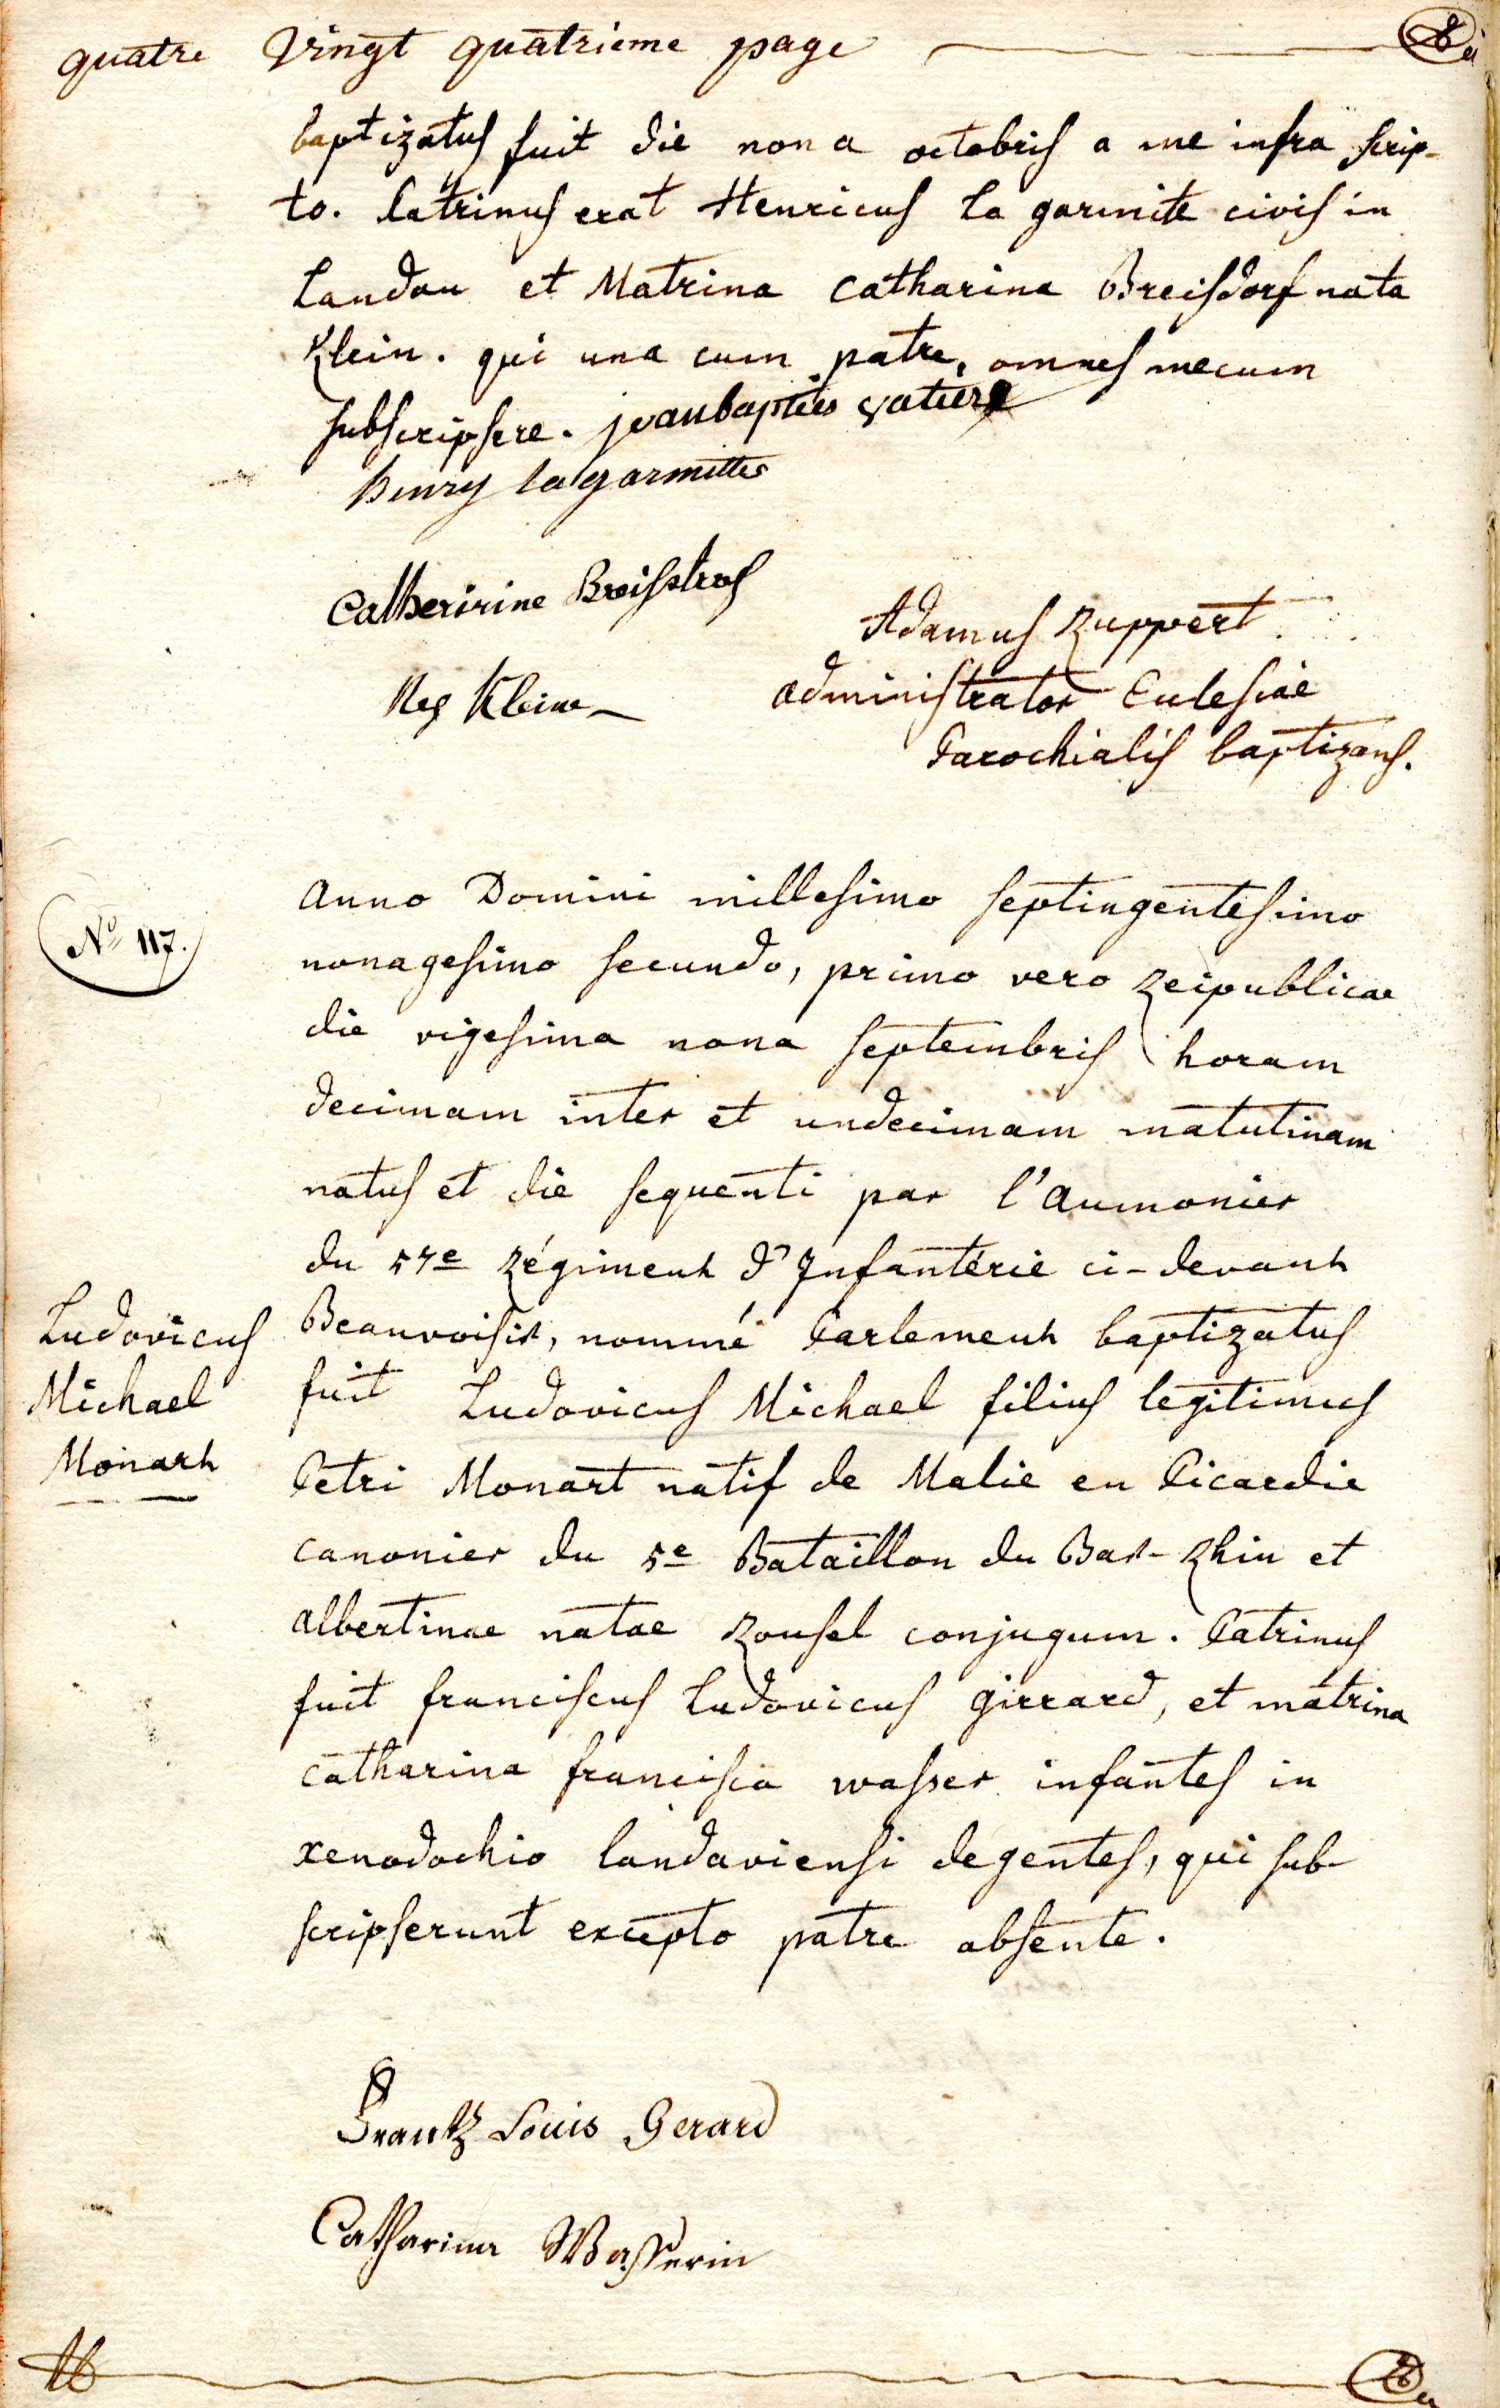 quatre Vingt quatrieme page
baptizatus fuit die nona octobris a me infra scrip-
to. Patrinus erat Henricus la garmitte civis in
Landau et Matrina Catharina Breisdorf nata
Klein. qui una cum patre, omnes mecum
subscripsere. jeanbapties vatier
henry lagarmitte
Catheririne Breisstrof
Neg Klein
Adamus Ruppert
administrator Ecclesiae
Parochialis baptizans.
No 117.
Anno Domini millesimo septingentesimo
nonagesimo secundo, primo vero Reipublicae
die vigesima nona septembris horam
decimam inter et undecimam matutinam
natus et die sequenti par l'aumonier
du 57e Régiment d'Infantérie ci-devant
Beauvoisis, nommé Parlement baptizatus
fuit Ludovicus Michael filius legitimus
Petri Monart natif de Malie en Picardie
canonier du 5e Bataillon du Bas-Rhin et
Albertinae natae Rousel conjugum. Patrinus
fuit franciscus Ludovicus girrard, et matrina
catharina francisca wasser infantes in
xenodochio landaviensi degentes, qui sub-
scripserunt excepto patre absente.
Ludovicus
Michael
Monart
Frantz Louis Gerard
Catharina Wasserin